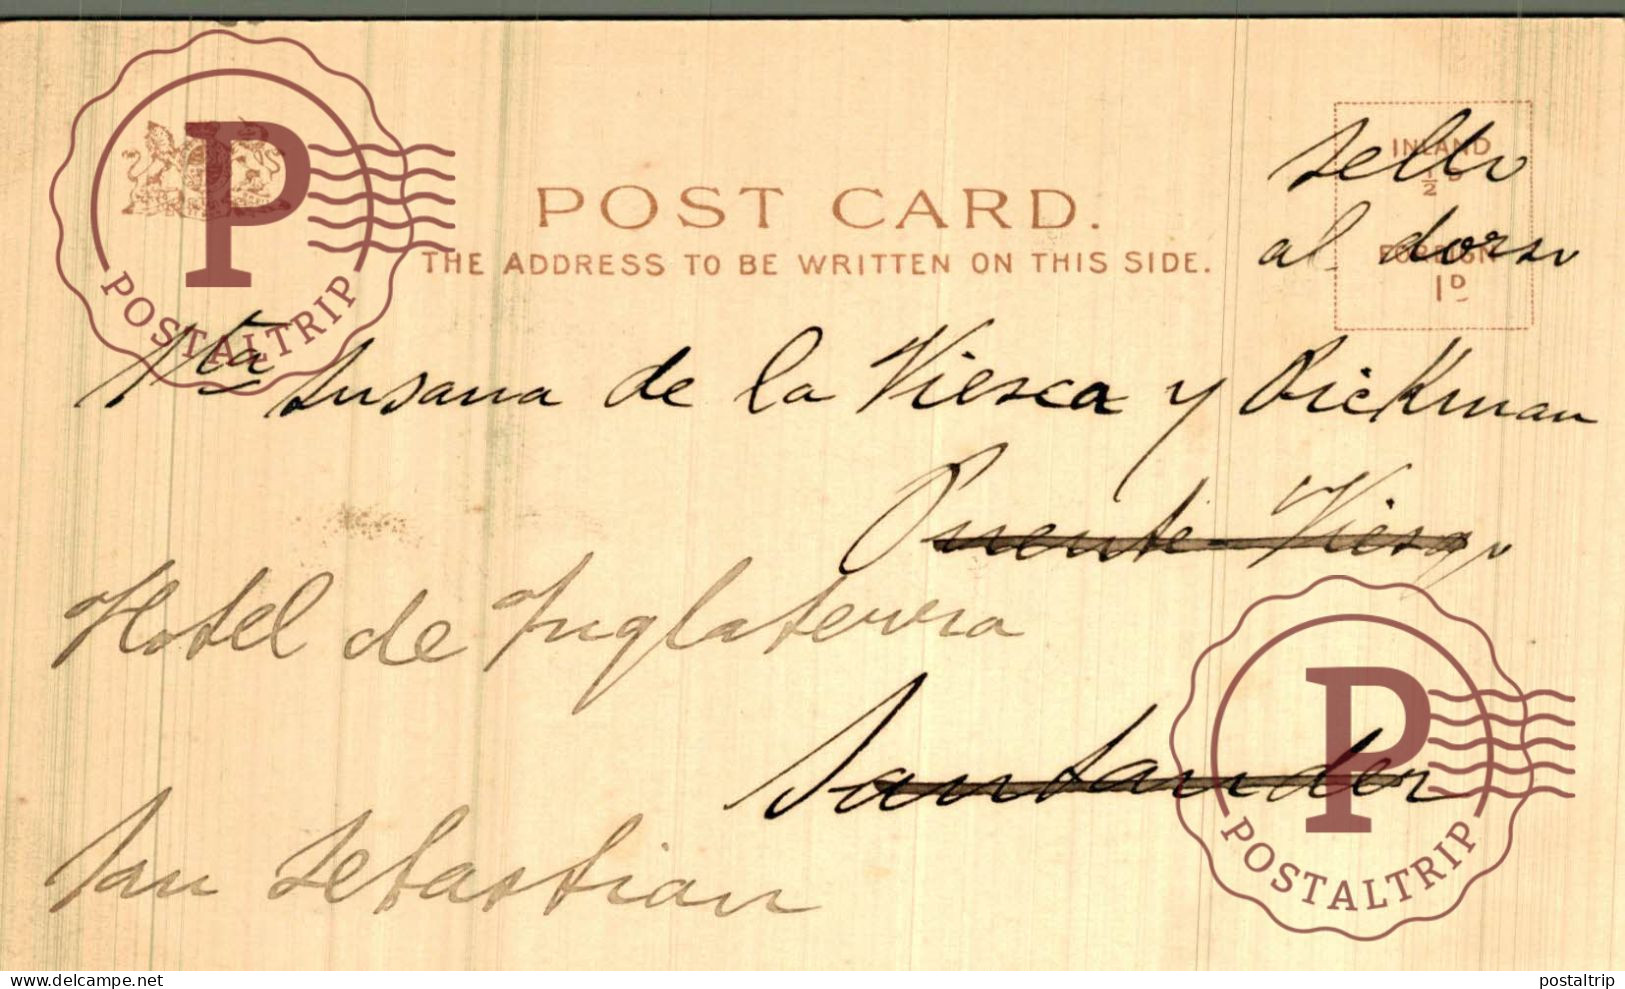 sello
INLAND
½ D
al dorso
FOREIGN
1D
POST CARD.
THE ADDRESS TO BE WRITTEN ON THIS SIDE.
P
POSTALTRIP
Sta Susana de la Viesca y Pickman
Puente Viesgo
Hotel de Inglaterra
Santander
San Sebastian
P
POSTALTRIP
delcampe.net
postaltrip